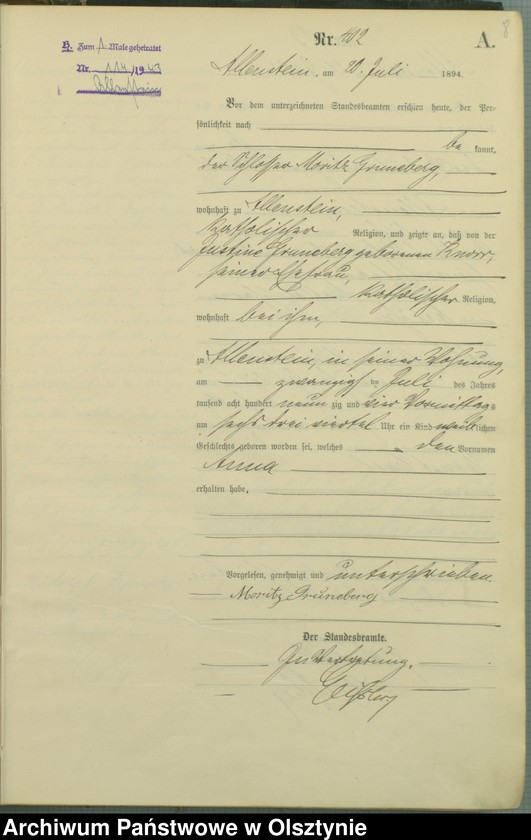 8
H. Zum 1 Male geheiratet
Nr. 114/1943
Allenstein
Nr. 402
A.
Allenstein, am 20. Juli 1894.
Vor dem unterzeichneten Standesbeamten erschien heute, der Per-
sönlichkeit nach
be kannt,
der Schlosser Moritz Gruneberg,
wohnhaft zu Allenstein,
katholischer Religion, und zeigte an, daß von der
Justine Gruneberg geborenen Knorr,
seiner Ehefrau,
katholischer Religion,
wohnhaft bei ihm,
zu Allenstein, in seiner Wohnung,
am zwanzigsten Juli des Jahres
tausend acht hundert neunzig und vier Vormittags
um sechs drei viertel Uhr ein Kind weiblichen
Geschlechts geboren worden sei, welches den Vornamen
Anna
erhalten habe.
Vorgelesen, genehmigt und unterschrieben
Moritz Gruneberg
Der Standesbeamte.
In Vertretung.
Archiwum Państwowe w Olsztynie